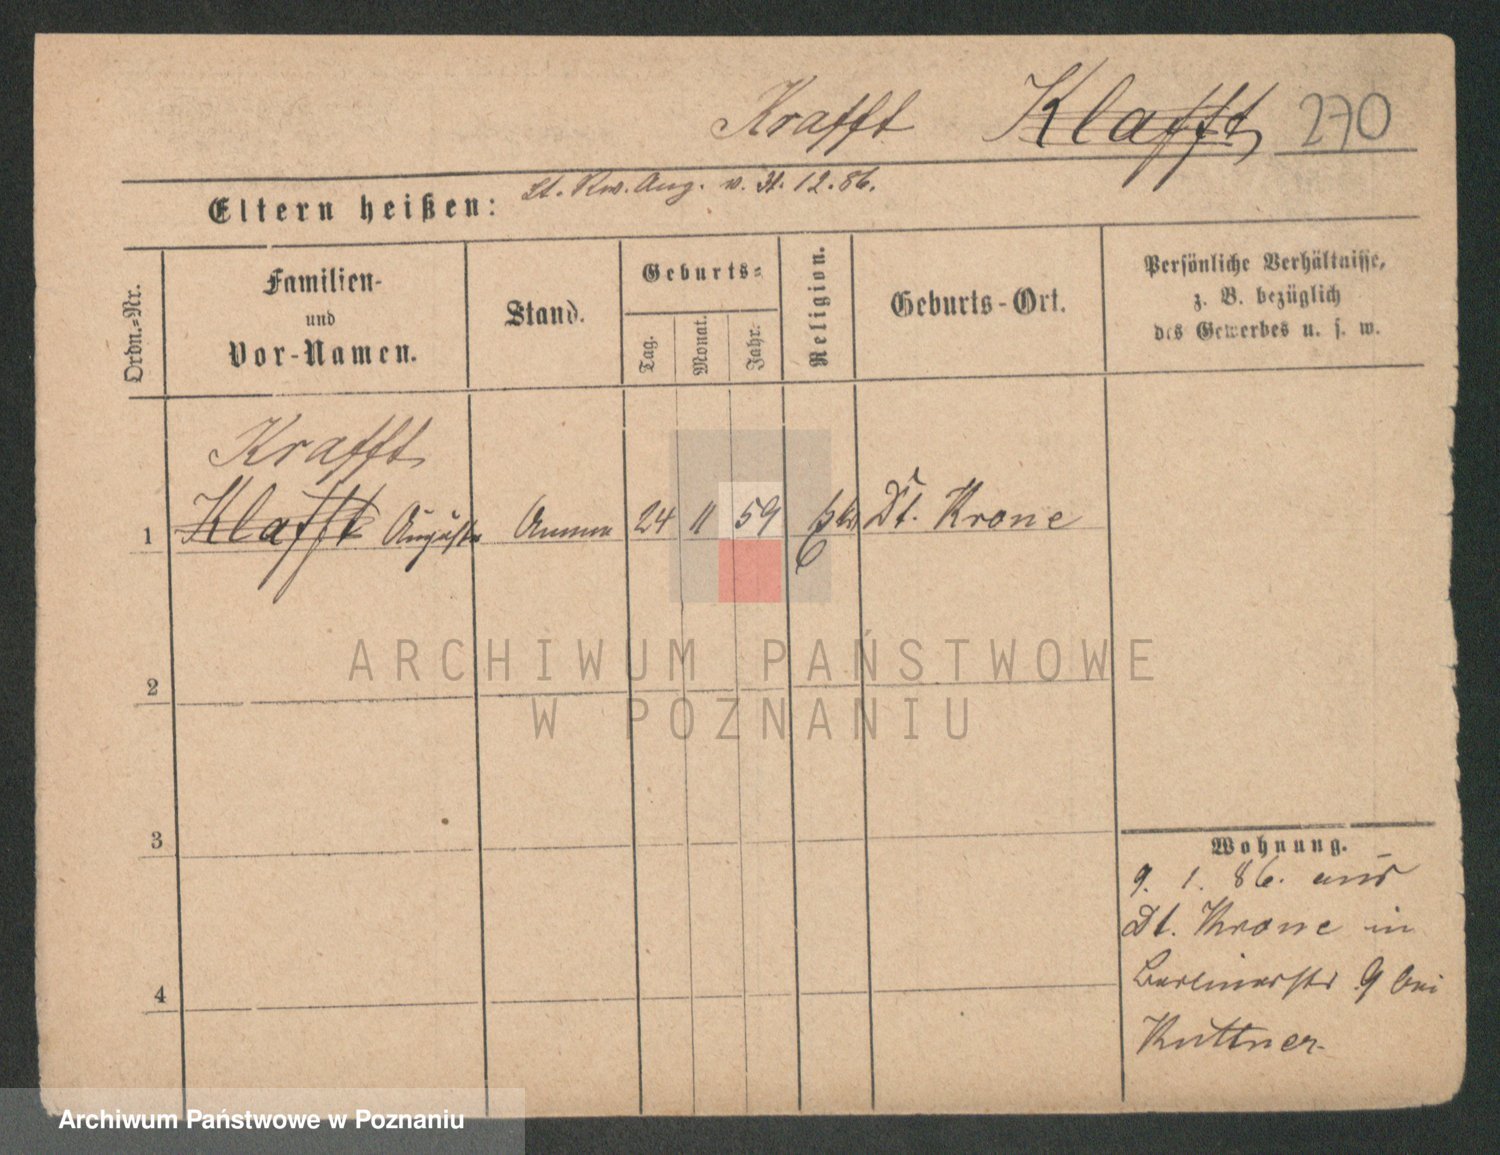 Krafft Klafft 270
Lt. Rev. Aug. v. 31.12.86.
Eltern heißen:
Ordn.=Nr.
Familien-
und
Vor-Namen.
Stand.
Geburts=
Tag.
Monat.
Jahr.
Religion.
Geburts-Ort.
Persönliche Verhältnisse,
z. B. bezüglich
des Gewerbes u. s. w.
Krafft
1 Klafft Auguste Amme 24 11 59 Dt. Krone
2
3
4
Wohnung.
9. 1. 86. aus
Dt. Krone in
Berlinerstr 9 bei
Kuttner
ARCHIWUM PAŃSTWOWE
W POZNANIU
Archiwum Państwowe w Poznaniu